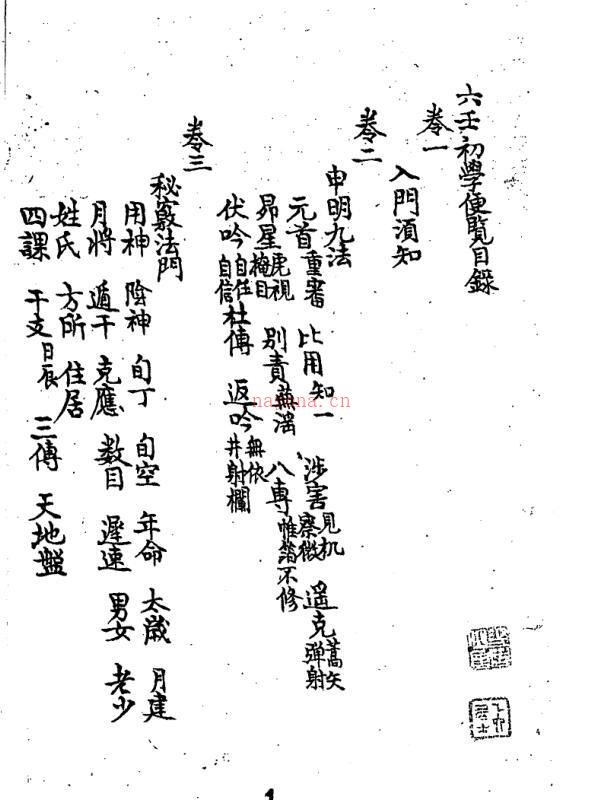 六壬初學便覽目錄
卷一
入門須知
卷二
申明九法
元首 重審 比用 知一 涉害 見机 察微 遥克 蒿矢 彈射
昴星 虎視 掩目 別責 蕪淫 八專 帷簿不修
伏吟 自任 自信 杜傳 返吟 無依 井射欄
卷三
秘竅法門
用神 陰神 旬丁 旬空 年命 太歲 月建
月將 遁干 克應 數目 遲速 男女 老少
姓氏 方所 住居
四課 干支 日辰 三傳 天地盤
1